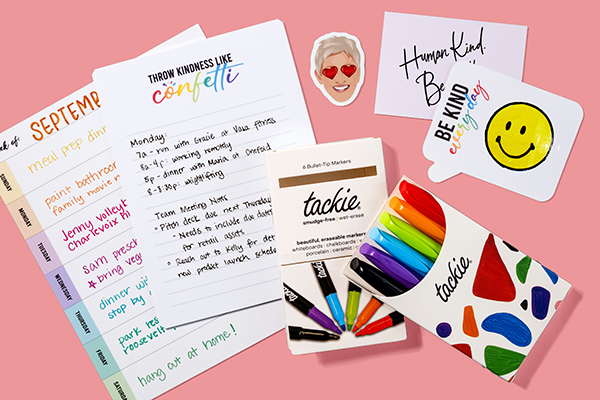 of
SEPTEMB
SUNDAY
meal prep din
MONDAY
paint bathroom
family movie n
TUESDAY
Jenny
Charlevoix
WEDNESDAY
sam
+ bring
THURSDAY
dinner
stop by
FRIDAY
park
roosevelt
SATURDAY
hang out at home!
THROW KINDNESS LIKE
confetti
Monday:
7a - run with Gracie at Vasa fitness
8a-4p: working remotely
5p - dinner with Maria at Onefold
8-8:30p: weightlifting
Team Meeting Notes
• Pitch deck due next Thursday
- Needs to include due dates
for retail assets
• Reach out to Kelly for det
new product launch schedu
6 Bullet-Tip Markers
tackie.
smudge-free | wet-erase
beautiful, eraseable markers
whiteboards | chalkboards
porcelain | ceramic
tackie.
tackie.
Human Kind.
Be
BE KIND
every day